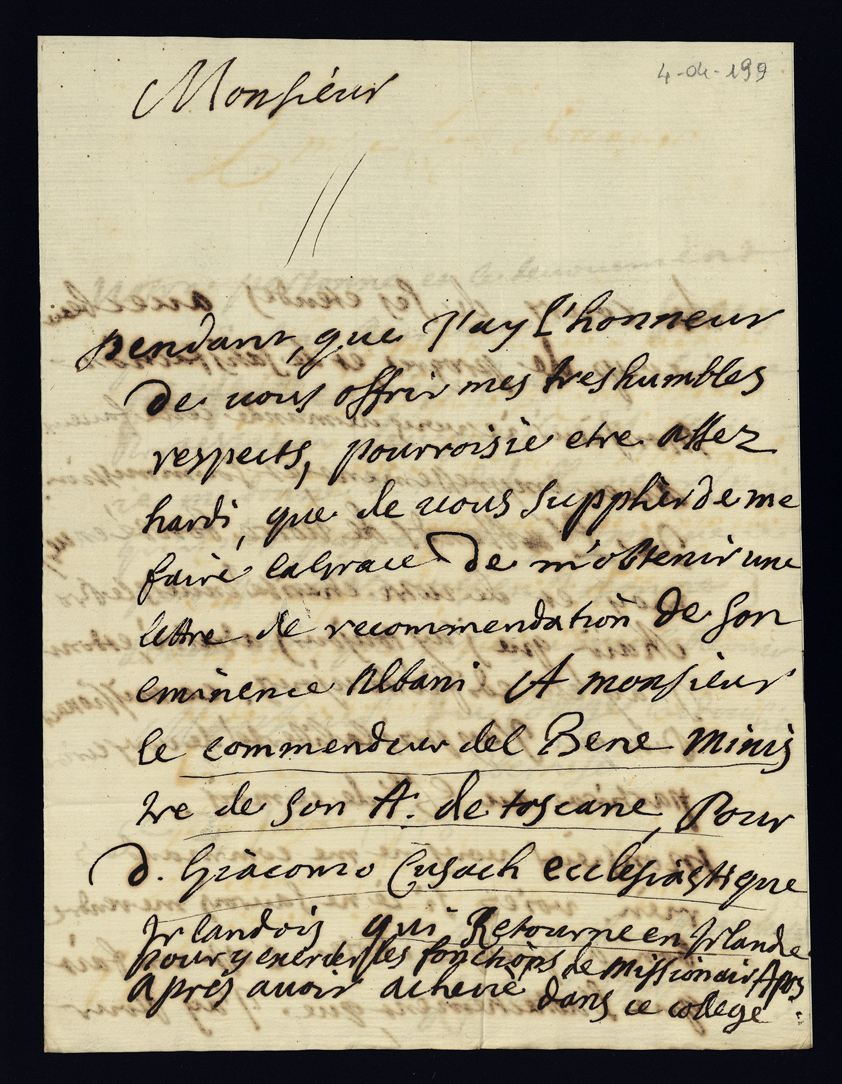 4-04-199
Monsiéur
pendant, que J'ay l'honneur
de vous offrir mes tres humbles
respects, pourroisie etre assez
hardi, que de vous supplier de me
faire la Grace de m'obtenir une
lettre de recommendation de son
eminence Albani A monsieur
le commendeur del Bene Minis
tre de son A. de toscane, Pour
d. Giàcomo Cusach ecclesiàstique
Irlandois qui Retourne en Irlande
pour y exercer les fonctions de Missionair Apos
Aprés avoir achevè dans ce college